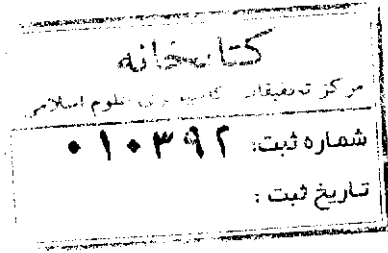 کتابخانه
مرکز تحقیقات کامپیوتری علوم اسلامی
شماره ثبت: ۰۱۰۳۹۲
تاریخ ثبت: